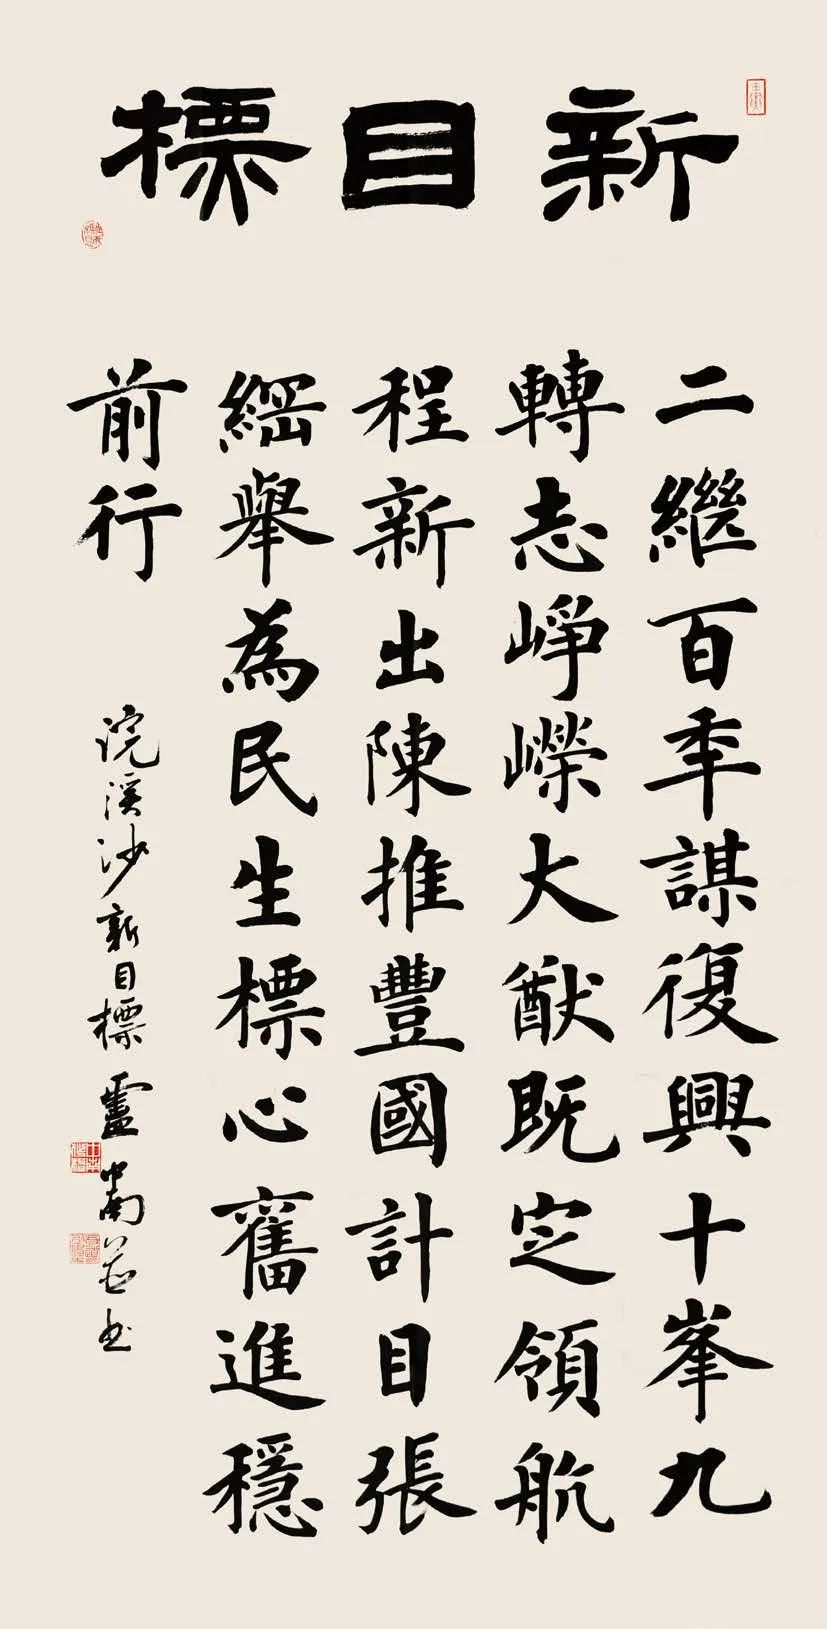 新目標
二繼百年謀復興十峯九
轉志崢嶸大猷既定領航
程新出陳推豐國計目張
綱舉為民生標心奮進穩
前行
浣溪沙新目標